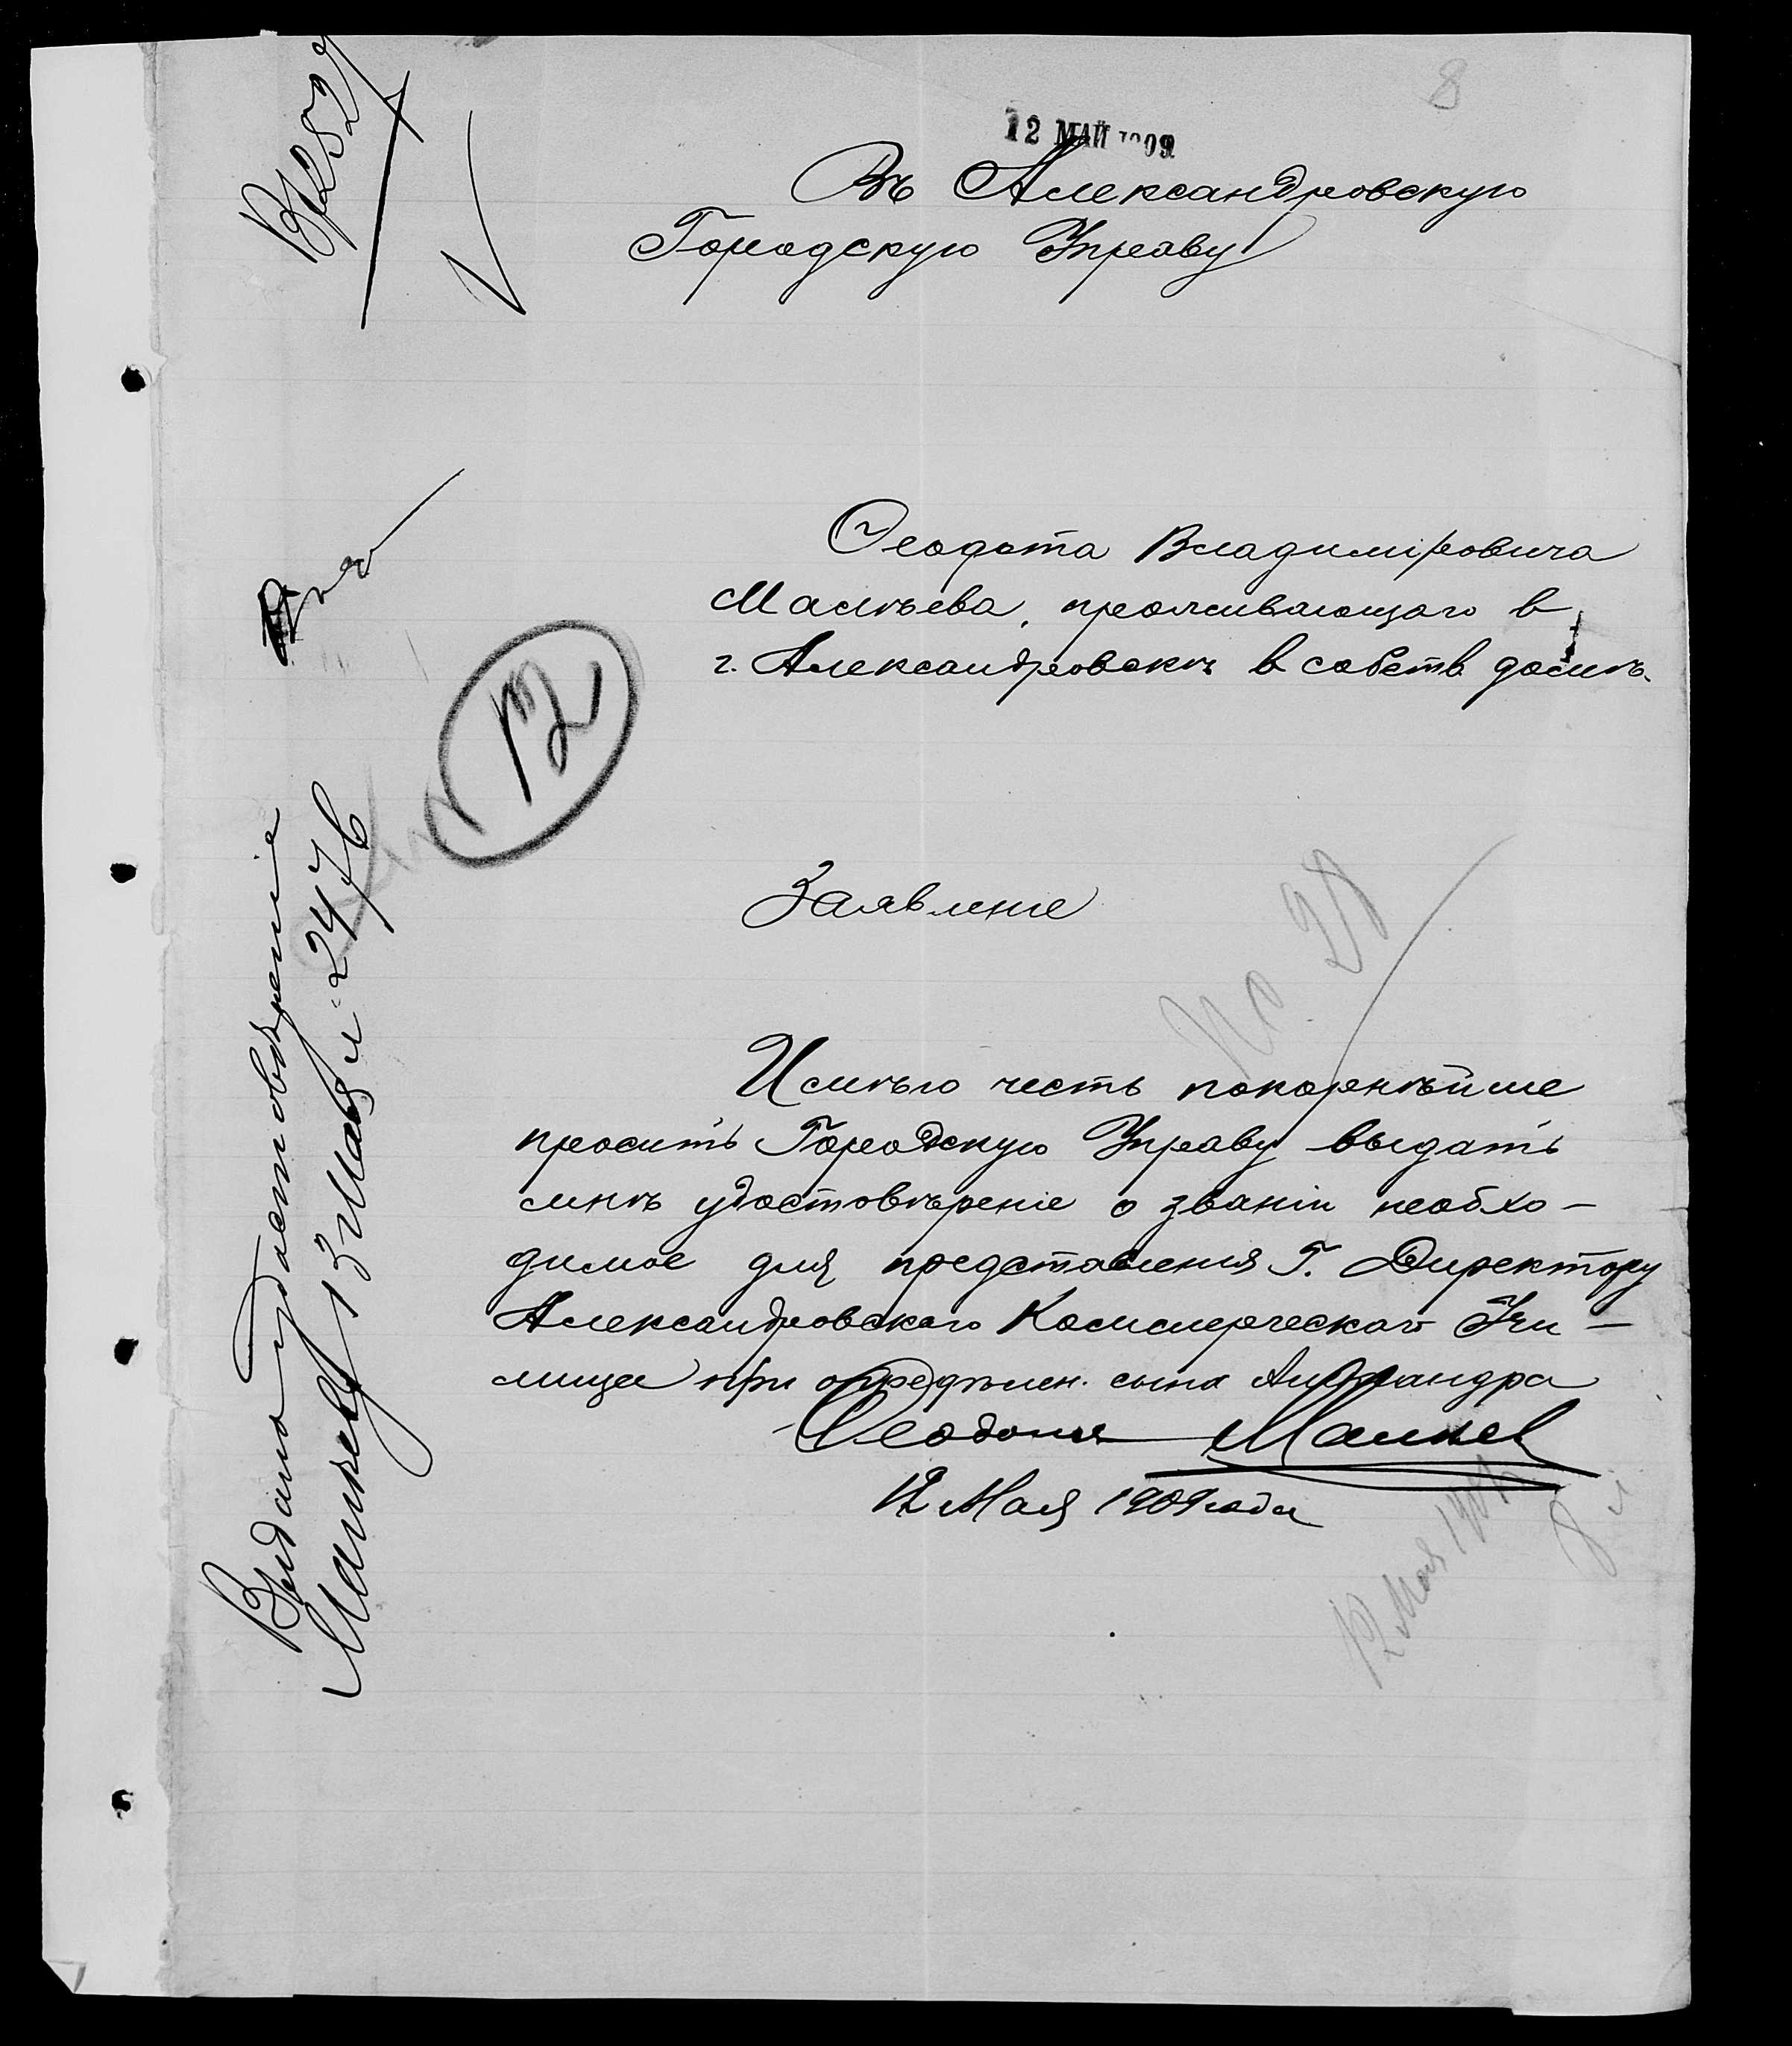 8
12 МАЙ 1909
Въ Александровскую
Городскую Управу
Ѳеодота Владиміровича
Макѣева, проживающаго в
г. Александровскѣ в собств домѣ.
12
Заявленіе
Имѣю честь покорнѣйше
просить Городскую Управу выдать
мнѣ удостовѣреніе о званіи необхо-
димое для представленія Г. Директору
Александровскаго Коммерческаго Учи-
лища при опредѣлен. сына Александра
Ѳеодотъ
12 Мая 1909 года
12 Мая 190
Выдано удостовѣреніе
13 Мая 2476